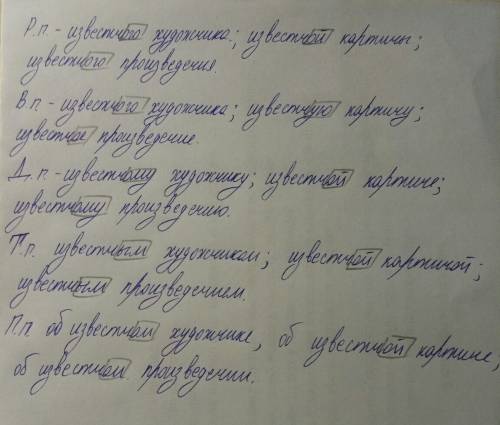 Р.п. - известного художника; известной картины;
известного произведения.
В.п. - известного художника; известную картину;
известное произведение.
Д.п. - известному художнику; известной картине;
известному произведению.
Т.п. известным художником; известной картиной;
известным произведением.
П.п об известном художнике, об известной картине,
об известном произведении.